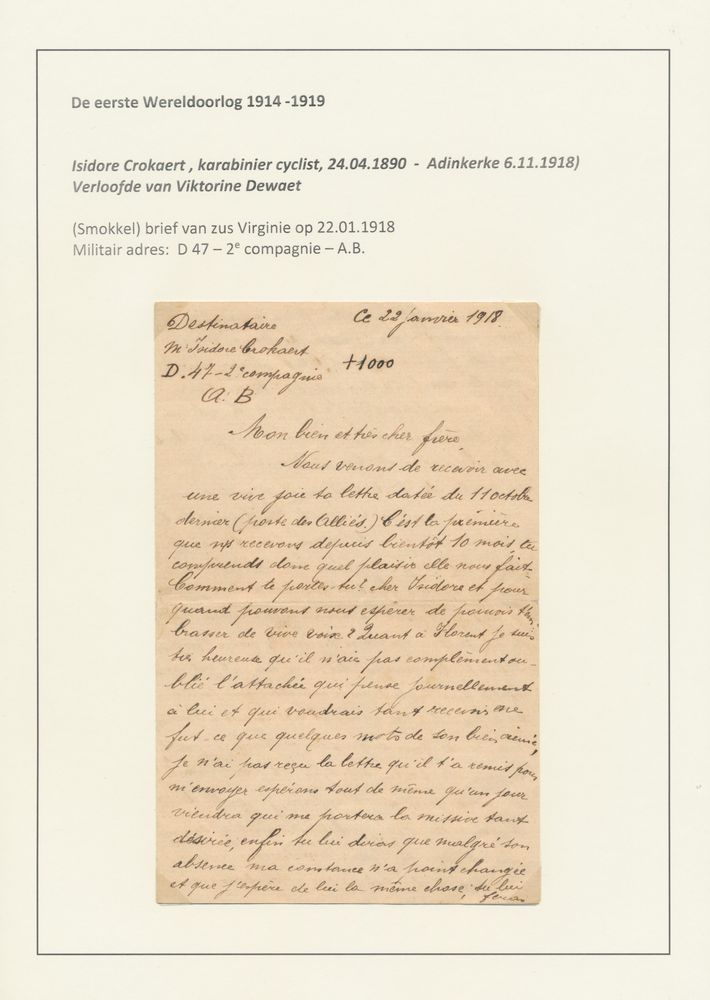 De eerste Wereldoorlog 1914 -1919
Isidore Crokaert , karabinier cyclist, 24.04.1890 - Adinkerke 6.11.1918)
Verloofde van Viktorine Dewaet
(Smokkel) brief van zus Virginie op 22.01.1918
Militair adres: D 47 – 2e compagnie – A.B.
Destinataire
Ce 22 janvier 1918.
Mr Isidore Crokaert
+1000
D. 47 - 2e compagnie
A. B
Mon bien et très cher frère,
Nous venons de recevoir avec
une vive joie ta lettre datée du 11 octobre
dernier (poste des Alliés.) C'est la première
que ns recevons depuis bientôt 10 mois, tu
comprends donc quel plaisir elle nous fait.
Comment te portes-tu? cher Isidore et pour
quand pouvons nous espérer de pouvoir t'em
brasser de vive voix? Quant à Florent je suis
très heureuse qu'il n'aie pas complèment ou-
blié l'attachée qui pense journellement
à lui et qui voudrais tant recevoir ne
fut-ce que quelques mots de son bien aimé,
je n'ai pas reçu la lettre qu'il t'a remis pour
m'envoyer espérons tout de même qu'un jour
viendra qui me portera la missive tant
désirée, enfin tu lui diras que malgré son
absence ma constance n'a point changée
et que j'espère de lui la même chose; tu lui
feras